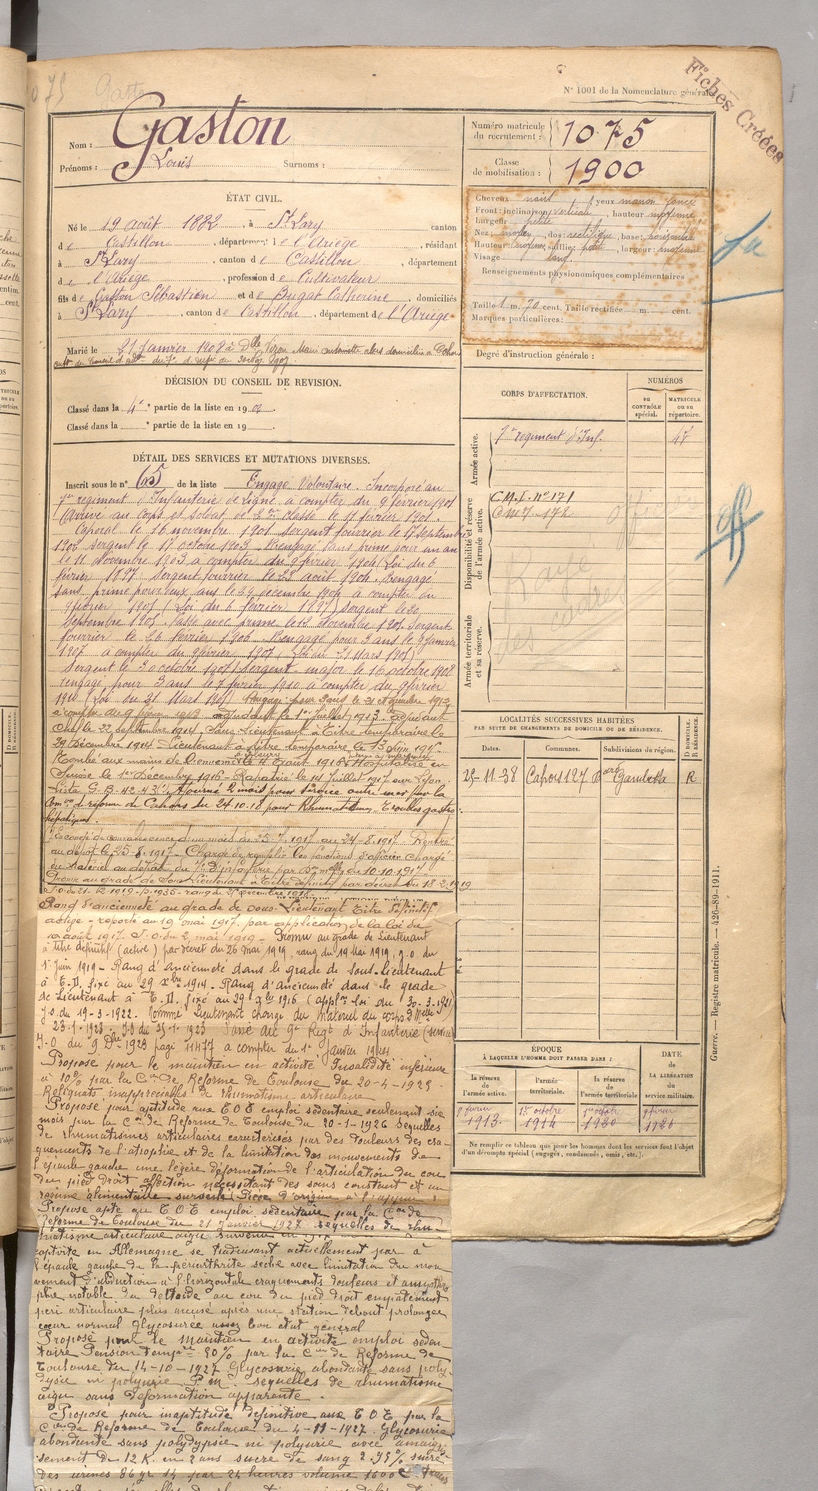 Fiches Créées
N° 1001 de la Nomenclature générale
Nom : Gaston
Prénoms : Louis Surnoms :
Numéro matricule du recrutement : 1075
Classe de mobilisation : 1900
ÉTAT CIVIL.
Né le 19 août 1882, à St Lary canton
de Castillon, département de l'Ariège, résidant
à St Lary, canton de Castillon, département
de l'Ariège, profession de Cultivateur
fils de Gaston Sébastien et de Bugat Catherine, domiciliés
à St Lary, canton de Castillon, département de l'Ariège
Marié le 21 Janvier 1908 à Dlle
Cheveux noirs yeux marron foncé
Front : inclinaison verticale, hauteur moyenne
largeur petite
Nez : moyen, dos rectiligne, base horizontale
Hauteur moyenne saillie petite, largeur moyenne
Visage long
Renseignements physionomiques complémentaires
Taille 1 m. 70 cent. Taille rectifiée m. cent.
Marques particulières :
Degré d'instruction générale :
DÉCISION DU CONSEIL DE REVISION.
Classé dans la 4e partie de la liste en 1901
Classé dans la partie de la liste en 19
CORPS D'AFFECTATION.
NUMÉROS
AU CONTRÔLE spécial.
MATRICULE OU AU répertoire.
Armée active.
7e regiment d'Inf. 47
Disponibilité et réserve de l'armée active.
C.M.I. N° 171
Rayé des cadres
Armée territoriale et sa réserve.
DÉTAIL DES SERVICES ET MUTATIONS DIVERSES.
Inscrit sous le n° 65 de la liste Engagé Volontaire. Incorporé au
7e regiment d'Infanterie de Ligne à compter du 9 février 1901
Arrivé au Corps et soldat de 2e classe le 11 février 1901.
Caporal le 16 novembre 1901 Sergent fourrier le 17 septembre
1902 Sergent le 17 octobre 1903 Rengagé sans prime pour un an
le 11 Novembre 1903 à compter du 9 février 1904 (Loi du 6
février 1897 Sergent fourrier le 23 août 1904. Rengagé
sans prime pour deux ans le 29 décembre 1904 à compter du
9 février 1905 (Loi du 6 février 1897) Sergent le 20
Septembre 1905. passé avec prime le 12 Novembre 1905 Sergent
fourrier le 26 février 1906 Rengagé pour 3 ans le 9 Janvier
1907 à compter du 9 février 1907 (Loi du 21 Mars 1905)
Sergent le 30 octobre 1907 Sergent major le 16 octobre 1908
rengagé pour 3 ans le 7 février 1910 à compter du 9 février
1910 (Loi du 21 Mars 1905)
à compter du 9 février 1913 Adjudant le 1er Juillet 1913 Adjudant
Chef le 22 septembre 1914 Sous Lieutenant à titre temporaire le
29 Décembre 1914 Lieutenant à titre temporaire le 13 Juin 1915
Tombé aux mains de l'ennemi le 4 août 1916. Hospitalisé en
Suisse le 1er Décembre 1916 Rapatrié le 14 Juillet 1917 sur Lyon
Cme de réforme de Cahors du 24.10.18 pour Rhumatisme, troubles gastro
hépatiques.
au dépôt le 25-8-1917. Chargé de remplir les fonctions d'officier chargé
Promu au grade de Sous Lieutenant à titre définitif par décret du 18.2.1919
Rang d'ancienneté au grade de sous-Lieutenant titre définitif
active reporté au 19 mai 1917 par application de la loi du
10 août 1917. J.O. du 2 mai 1919 - Promu au grade de Lieutenant
à titre définitif (active) par décret du 26 mai 1919, rang du 19 Mai 1919, J.O. du
1er Juin 1919 - Rang d'ancienneté dans le grade de sous-Lieutenant
à T.D. fixé au 29 Xbre 1914. Rang d'ancienneté dans le grade
de Lieutenant à T.D. fixé au 29 Xbre 1916 (appl. loi du 30-3-1921)
J.O. du 19-3-1922. Nommé Lieutenant chargé du Matériel
23-1-1923 Passé au 9e Régt d'Infanterie (service)
J.O. du 9 Dbre 1923 page 11477 à compter du 1er Janvier 1924
Proposé pour le maintien en activité Invalidité inférieure
à 10% par la Con de Réforme de Toulouse du 20-4-1925
Reliquats inappréciables de rhumatisme articulaire
Proposé pour aptitude aux T.O.E emploi sédentaire seulement six
mois par la Con de Réforme de Toulouse du 20-1-1926 Séquelles
de rhumatismes articulaires caractérisés par des douleurs des cra-
quements de l'atrophie et de la limitation des mouvements de
l'épaule gauche une légère déformation de l'articulation du cou
du pied droit affection nécessitant des soins constant et un
régime alimentaire surveillé
Proposé apte aux T.O.E emploi sédentaire par la Con de
Réforme de Toulouse du 21 Janvier 1927 séquelles de rhu-
matisme articulaire aigu survenu en
captivité en Allemagne se traduisant actuellement par à
l'épaule gauche de la périarthrite sèche avec limitation du mou
vement d'abduction à l'horizontale craquements douleurs et amyotro
phie notable du deltoïde au cou du pied droit empâtement
péri articulaire plus accusé après une station debout prolongée
cœur normal Glycosurée assez bon état général
Proposé pour le maintien en activité emploi séden
taire Pension tempre 20% par la Con de Réforme de
Toulouse du 14-10-1927 Glycosurie abondante sans poly-
dysie ni polyurie P.M. séquelles de rhumatisme
aigu sans déformation apparente.
Proposé pour inaptitude définitive aux T.O.E par la
Con de Réforme de Toulouse du 4-11-1927. Glycosurie
abondante sans polydypsie ni polyurie avec amaigris-
sement de 12 K. en 2 ans sucre de sang 2.95% sucre
des urines 86 gr 14 par 24 heures volume 1600
LOCALITÉS SUCCESSIVES HABITÉES
PAR SUITE DE CHANGEMENTS DE DOMICILE OU DE RÉSIDENCE.
Dates. Communes. Subdivisions de région. D. DOMICILE. R. RÉSIDENCE.
25-11-38 Cahors 127 Bard Gambetta R
ÉPOQUE
À LAQUELLE L'HOMME DOIT PASSER DANS :
DATE DE LA LIBÉRATION du service militaire.
la réserve de l'armée active.
l'armée territoriale.
la réserve de l'armée territoriale
9 février 1913
1er octobre 1914
1er octobre 1920
9 février 1926
Ne remplir ce tableau que pour les hommes dont les services font l'objet
d'un décompte spécial (engagés, condamnés, omis, etc.).
Guerre. — Registre matricule. — 426-89-1911.